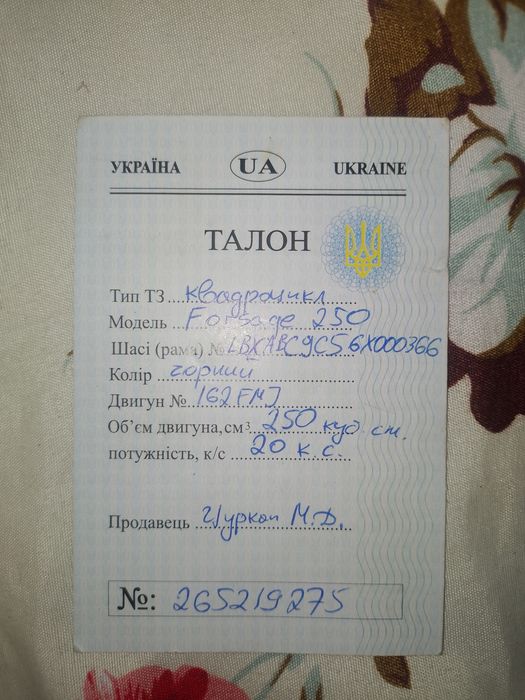 УКРАЇНА UA UKRAINE
ТАЛОН
Тип ТЗ квадроцикл
Модель Forsage 250
Шасі (рама) № LBXABC9C56X000366
Колір чорний
Двигун № 162FMJ
Об'єм двигуна, см³ 250 куб. см.
потужність, к/с 20 к.с.
Продавець М.Д.
№: 265219275